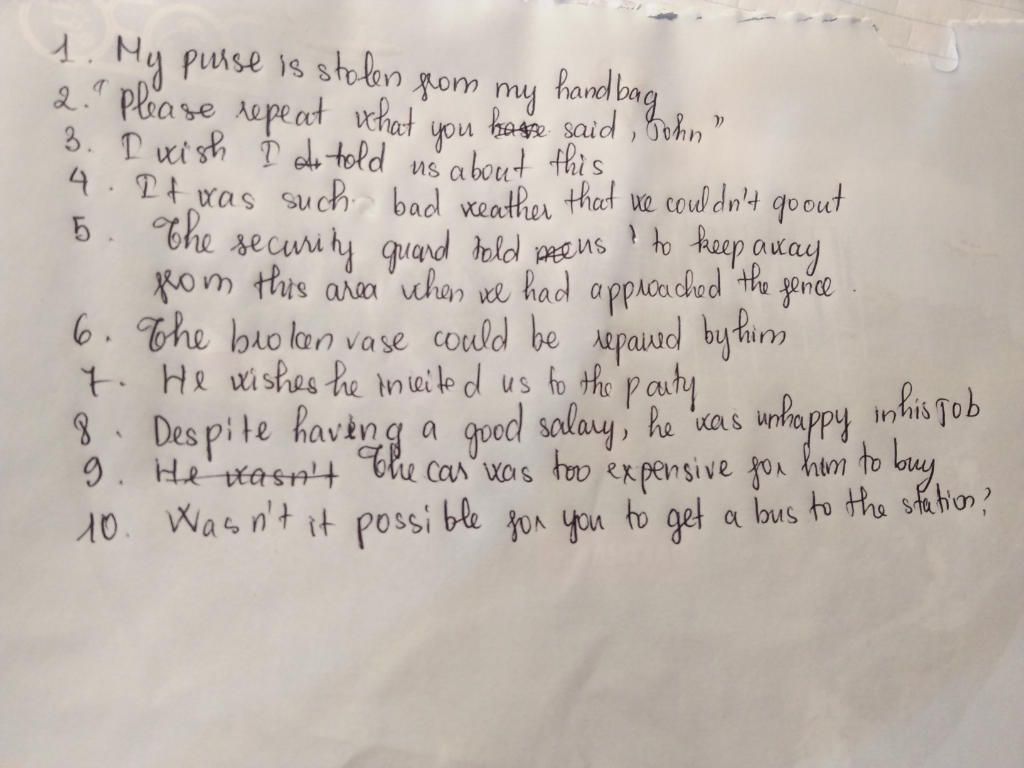 1. My purse is stolen from my handbag
2. "Please repeat what you have said, John"
3. I wish I told us about this
4. It was such bad weather that we couldn't go out
5. The security guard told us to keep away
from this area when we had approached the fence.
6. The broken vase could be repaired by him
7. He wishes he invited us to the party
8. Despite having a good salary, he was unhappy in his job
9. He wasn't The car was too expensive for him to buy
10. Wasn't it possible for you to get a bus to the station?